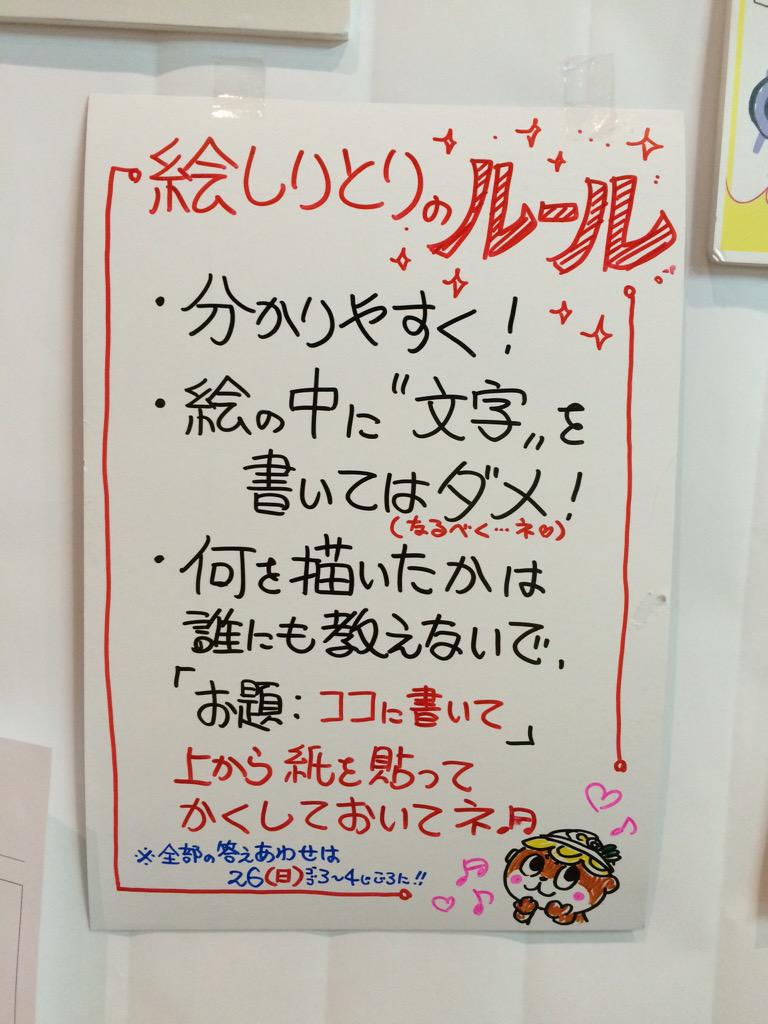 絵しりとりのルール
・分かりやすく！
・絵の中に〝文字〟を
書いてはダメ！
(なるべく…ネ♡)
・何を描いたかは
誰にも教えないで、
「お題：ココに書いて」
上から紙を貼って
かくしておいてネ♫
※全部の答えあわせは
26(日)ゴゴ3〜4じごろに!!